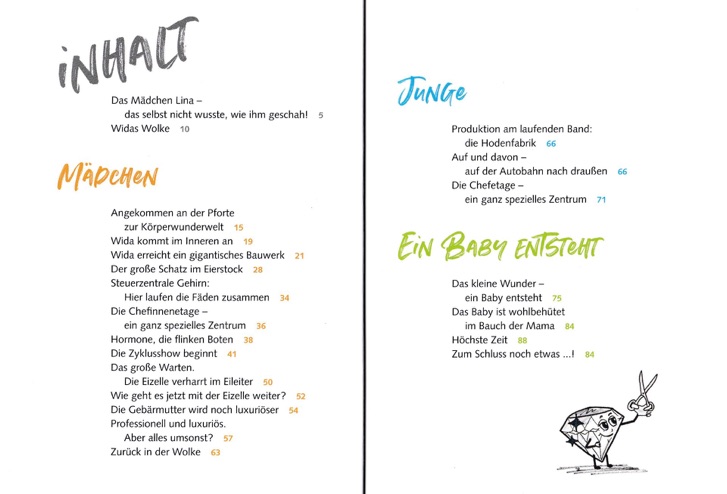 INHALT
Das Mädchen Lina –
das selbst nicht wusste, wie ihm geschah! 5
Widas Wolke 10
MÄDCHEN
Angekommen an der Pforte
zur Körperwunderwelt 15
Wida kommt im Inneren an 19
Wida erreicht ein gigantisches Bauwerk 21
Der große Schatz im Eierstock 28
Steuerzentrale Gehirn:
Hier laufen die Fäden zusammen 34
Die Chefinnenetage –
ein ganz spezielles Zentrum 36
Hormone, die flinken Boten 38
Die Zyklusshow beginnt 41
Das große Warten.
Die Eizelle verharrt im Eileiter 50
Wie geht es jetzt mit der Eizelle weiter? 52
Die Gebärmutter wird noch luxuriöser 54
Professionell und luxuriös.
Aber alles umsonst? 57
Zurück in der Wolke 63
JUNGE
Produktion am laufenden Band:
die Hodenfabrik 66
Auf und davon –
auf der Autobahn nach draußen 66
Die Chefetage –
ein ganz spezielles Zentrum 71
EIN BABY ENTSTEHT
Das kleine Wunder –
ein Baby entsteht 75
Das Baby ist wohlbehütet
im Bauch der Mama 84
Höchste Zeit 88
Zum Schluss noch etwas ...! 84